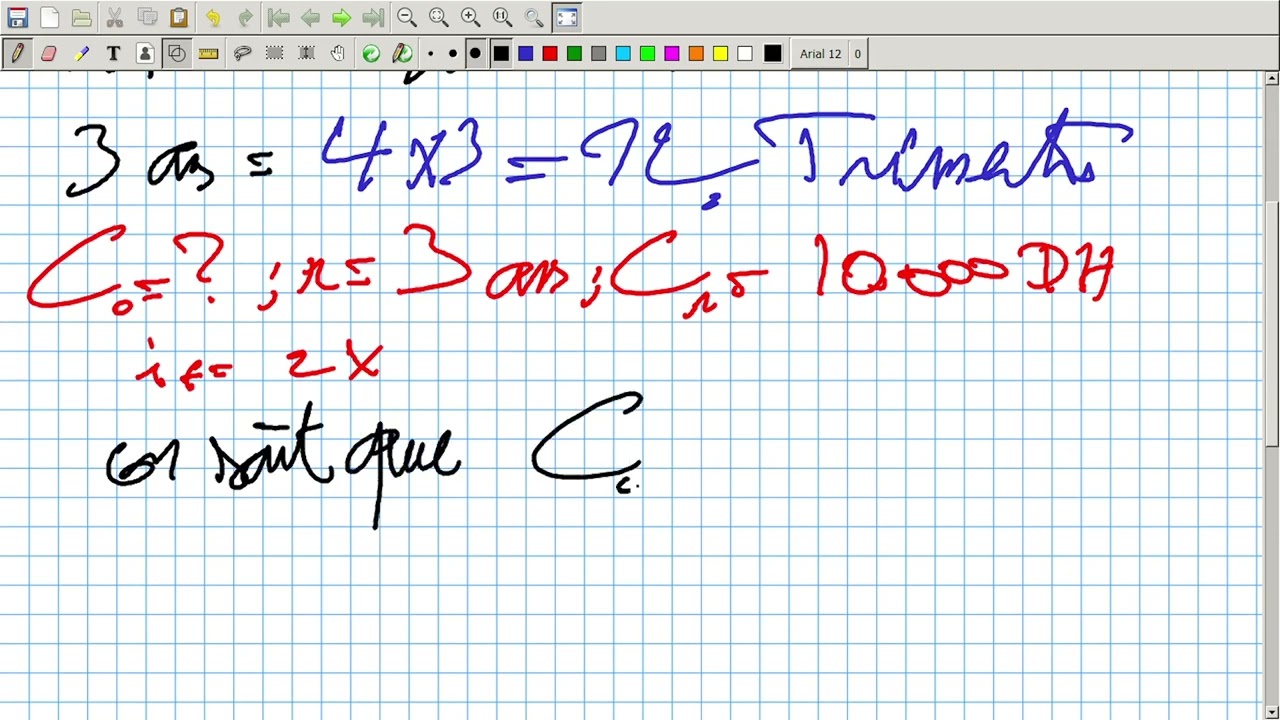 Arial 12 0
3 ans = 4x3 = 12 Trimestres
C₀ = ? ; n = 3 ans ; Cₙ = 10.000 DH
iₜ = 2 %
on sait que C